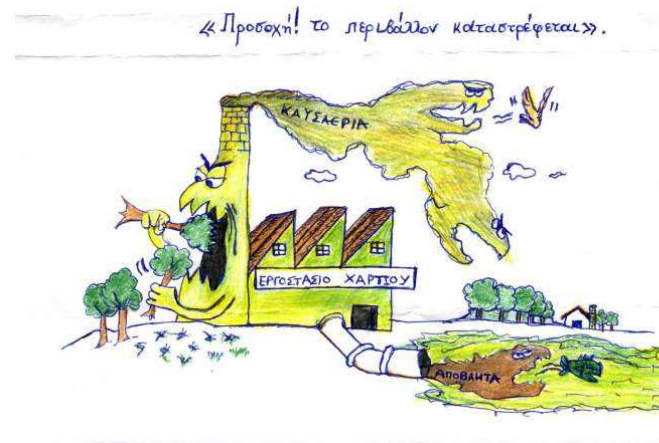 «Προσοχή! το περιβάλλον καταστρέφεται».
ΚΑΥΣΑΕΡΙΑ
ΕΡΓΟΣΤΑΣΙΟ ΧΑΡΤΙΟΥ
ΑΠΟΒΛΗΤΑ